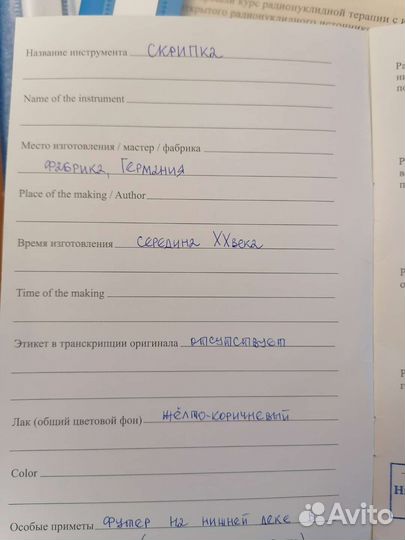 курс радионуклидной терапии с и
открытого радионуклидного источника
Название инструмента СКРИПКА
Name of the instrument
Место изготовления / мастер / фабрика
ФАБРИКА, ГЕРМАНИЯ
Place of the making / Author
Время изготовления СЕРЕДИНА XX ВЕКА
Time of the making
Этикет в транскрипции оригинала ОТСУТСТВУЕТ
Лак (общий цветовой фон) ЖЁЛТО-КОРИЧНЕВЫЙ
Color
Особые приметы ФУТЕР НА НИЖНЕЙ ДЕКЕ
Avito